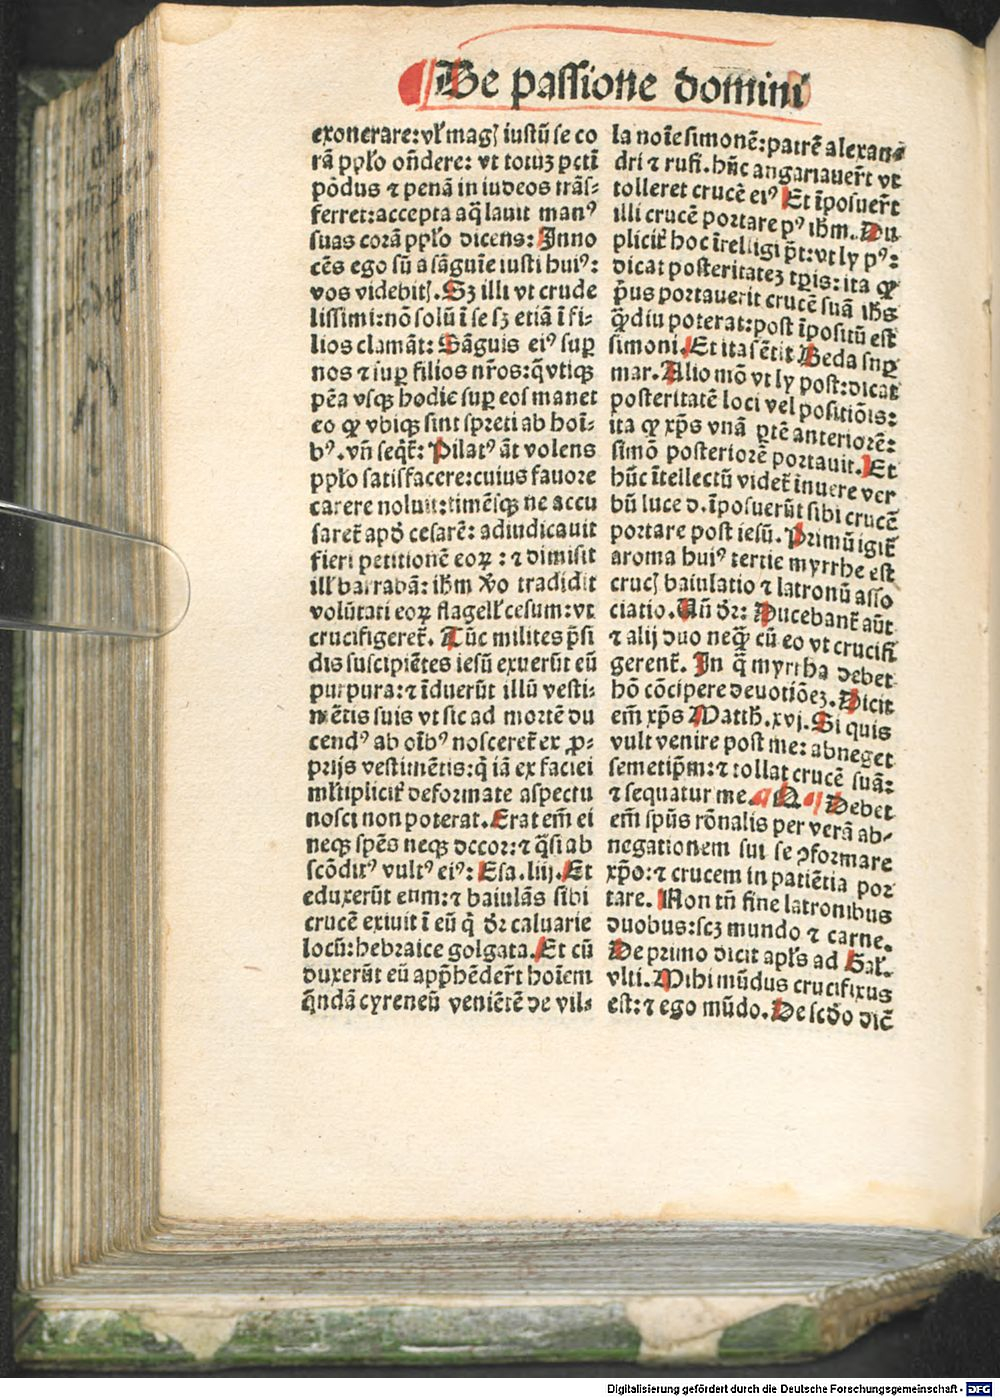 De passione domini
exonerare: vł magꝭ iustū se co
rā pplo oñdere: vt totuz pcti
pōdus ⁊ penā in iudeos trās-
ferret: accepta aq̄ lauit manꝰ
suas corā pplo dicens: Inno
cēs ego sū a sāguīe iusti huiꝰ:
vos videbitꝭ. Sz illi vt crude
lissimi: nō solū ī se sz etiā ī fi-
lios clamāt: Sāguis eiꝰ suꝑ
nos ⁊ suꝑ filios nr̄os: q̄ vtiqꝫ
pēa vsqꝫ hodie suꝑ eos manet
eo ꝙ vbiqꝫ sint spreti ab hoī-
bꝰ. vñ seqͭ̄: Pilatꝰ āt volens
pplo satisfacere: cuius fauore
carere noluit: timēsqꝫ ne accu
saret̄ apd̄ cesarē: adiudicauit
fieri petitionē eoꝝ: ⁊ dimisit
ill̄ barrabā: ihm̄ v̄o tradidit
volūtati eoꝝ flagell̄ cesum: vt
crucifigeret̄. Tūc milites p̄si
dis suscipiētes iesū exuerūt eū
purpura: ⁊ īduerūt illū vesti-
mētis suis vt sic ad mortē du
cendꝰ ab oībꝰ nosceret̄ ex ꝓ-
prijs vestimētis: q̄ iā ex faciei
mltiplicit̄ deformate aspectu
nosci non poterat. Erat em̄ ei
neqꝫ spēs neqꝫ decor: ⁊ q̄si ab
scōditꝰ vultꝰ eiꝰ: Esa. liij. Et
eduxerūt eum: ⁊ baiulās sibi
crucē exiuit ī eū q̄ dr̄ caluarie
locū: hebraice golgata. Et cū
duxerūt eū app̄hēder̄t hoīem
q̄ndā cyreneū veniētē de vil-
la noīe simonē: patrē alexan-
dri ⁊ rufi. hūc angariauer̄t vt
tolleret crucē eiꝰ Et īposuer̄t
illi crucē portare pꝰ ihm̄. Du
plicit̄ hoc ītelligi p̄t: vt ly pꝰ:
dicat posteritatez tp̄is: ita ꝙ
p̄us portauerit crucē suā ihs̄
q̄diu poterat: post īpositū est
simoni. Et ita sētit Beda suꝑ
mar. Alio mō vt ly post: dicat
posteritatē loci vel positiōis:
ita ꝙ xp̄s vnā ꝑtē anteriorē:
simō posteriorē portauit. Et
hūc ītellectū videt̄ īnuere ver
bū luce d. īposuerūt sibi crucē
portare post iesū. Primū igit̄
aroma huiꝰ tertie myrrhe est
crucꝭ baiulatio ⁊ latronū asso
ciatio. Uñ dr̄: Ducebant̄ aūt
⁊ alij duo neqͣ̄ cū eo vt crucifi
gerent̄. In q̄ myrrha debet
hō cōcipere deuotiōez. Dicit
em̄ xp̄s Matth. xvj. Si quis
vult venire post me: abneget
semetip̄m: ⁊ tollat crucē suā:
⁊ sequatur me. ¶ Q. ¶ Debet
em̄ spūs rōnalis per verā ab-
negationem sui se ꝯformare
xp̄o: ⁊ crucem in patiētia por
tare. Non tñ sine latronibus
duobus: scz mundo ⁊ carne.
De primo dicit apl̄s ad Gal̄.
vlti. Mihi mūdus crucifixus
est: ⁊ ego mūdo. De scdo dic̄
Digitalisierung gefördert durch die Deutsche Forschungsgemeinschaft - DFG